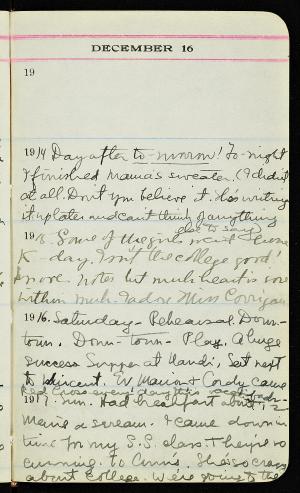 DECEMBER 16
19
1914 Day after to-morrow! To-night
I finished Mama's sweater. (I didn't
at all. Don't you believe it. I was writing
it up later and can't think of anything
else to say)
1915. Some of the girls went
K- day. Isn't the college good!
Snore. Notes but much heart is sore
within much. I adore Miss Corrigan
1916. Saturday - Rehearsal. Down-
town. Down-town - Play. A huge
success Supper at Handi, Sat next
to Vincent. Ev Marion & Cordy came
Red Cross every day this week
1917. Sun. Had breakfast about 12
Marie a scream. I came down in
time for my S.S. class. They're so
cunning. to Ann's. She's so crazy
about College. We're going to the